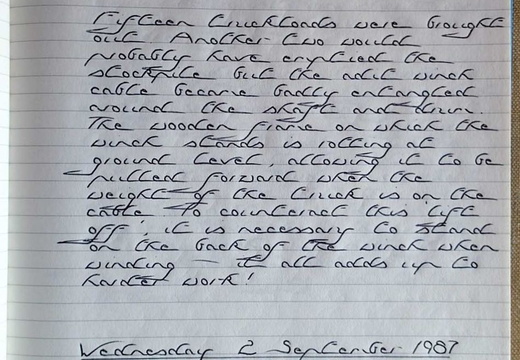 Fifteen truckloads were brought
out. Another two would
probably have emptied the
stockpile but the adit winch
cable became badly entangled
around the shaft and drum.
The wooden frame on which the
winch stands is rotting at
ground level, allowing it to be
pulled forward when the
weight of the truck is on the
cable. To counteract this 'lift
off', it is necessary to stand
on the back of the winch when
winding — it all adds up to
harder work!
Wednesday 2 September 1987